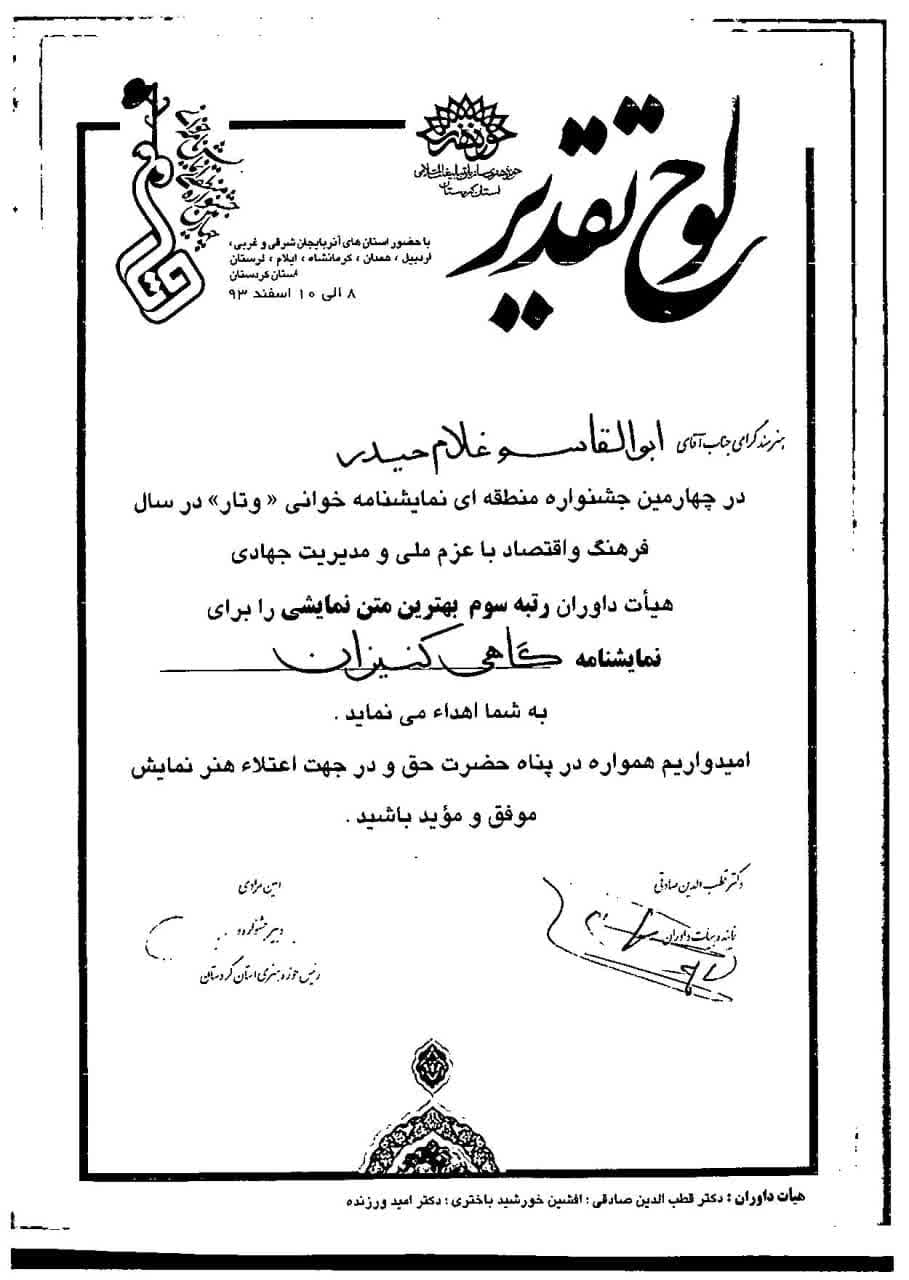 لوح تقدیر
حوزه هنری سازمان تبلیغات اسلامی
استان کردستان
چهارمین جشنواره منطقه ای نمایشنامه خوانی
وتار
با حضور استان های آذربایجان شرقی و غربی،
اردبیل ، همدان ، کرمانشاه ، ایلام ، لرستان
استان کردستان
۸ الی ۱۰ اسفند ۹۳
هنرمند گرامی جناب آقای ابوالقاسم غلام حیدر
در چهارمین جشنواره منطقه ای نمایشنامه خوانی « وتار» در سال
فرهنگ واقتصاد با عزم ملی و مدیریت جهادی
هیأت داوران رتبه سوم بهترین متن نمایشی را برای
نمایشنامه گاهی کنیزان
به شما اهداء می نماید .
امیدواریم همواره در پناه حضرت حق و در جهت اعتلاء هنر نمایش
موفق و مؤید باشید .
دکتر قطب الدین صادقی
نماینده هیأت داوران
امین مرادی
دبیر جشنواره و
رئیس حوزه هنری استان کردستان
هیأت داوران : دکتر قطب الدین صادقی ؛ افشین خورشید باختری ؛ دکتر امید ورزنده